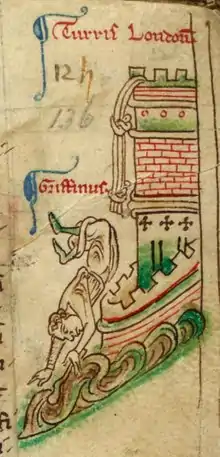 Turris London
12 h
136
Griffinus